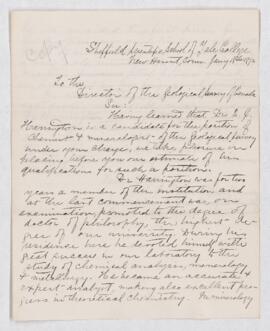 copy
Sheffield Scientific School of Yale College
New Haven, Conn Jany 18th 1872
To the
Director of the Geological Survey of Canada
Sir:
Having learned that Dr. B. J.
Harrington is a candidate for the position of
Chemist & mineralogist of the Geological Survey
under your charge, we take pleasure in
placing before you our estimate of his
qualifications for such a position.
Dr. Harrington was for two
years a member of this institution and
at the last commencement was, on
examination, promoted to the degree of
doctor of philosophy, the highest de-
gree of our university. During his
residence here he devoted himself with
great success in our laboratory to the
study of chemical analysis, mineralogy
& metallurgy. He became an accurate &
expert analyst, making also excellent pro-
gress in theoretical chemistry. In mineralogy